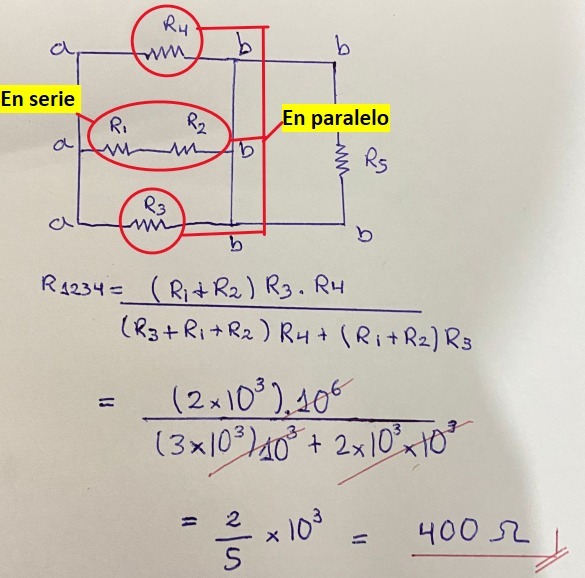 R4
a b b
En serie
R1 R2
En paralelo
a b
R5
R3
a b b
R1234 = (R1+R2) R3 . R4
(R3+R1+R2) R4 + (R1+R2) R3
= (2×10³).10⁶
(3×10³)10³ + 2×10³×10³
= 2/5 × 10³ = 400 Ω